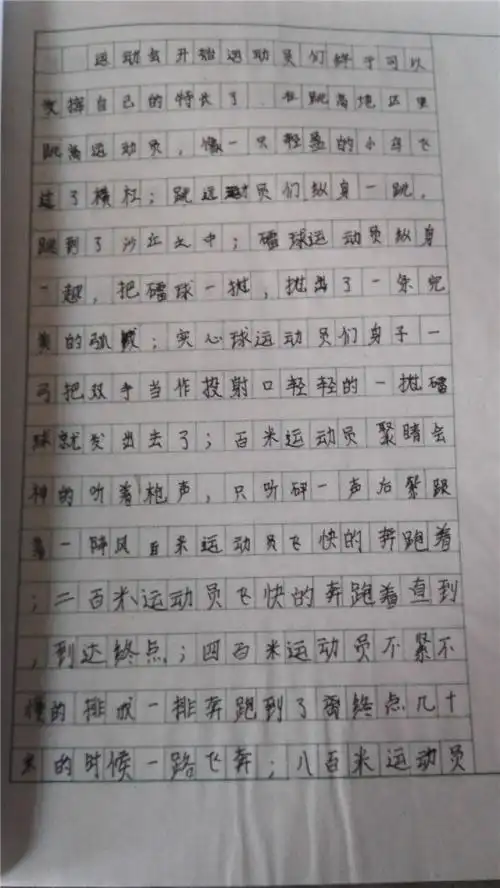 运动会开始运动员们终于可以
发挥自己的特长了．在跳高场这里
跳高运动员，像一只轻盈的小鸟飞
过了横杠；跳远运动员们纵身一跳，
跳到了沙丘之中；礌球运动员纵身
一趄，把礌球一抛，抛出了一条完
美的弧；实心球运动员们身子一
弓把双手当作投射口轻轻的一抛礌
球就发出去了；百米运动员聚睛会
神的听着枪声，只听砰一声后紧跟
着一阵风百米运动员飞快的奔跑着
；二百米运动员飞快的奔跑着直到
，到达终点；四百米运动员不紧不
慢的排成一排奔跑到了离终点几十
米的时候一路飞奔；八百米运动员